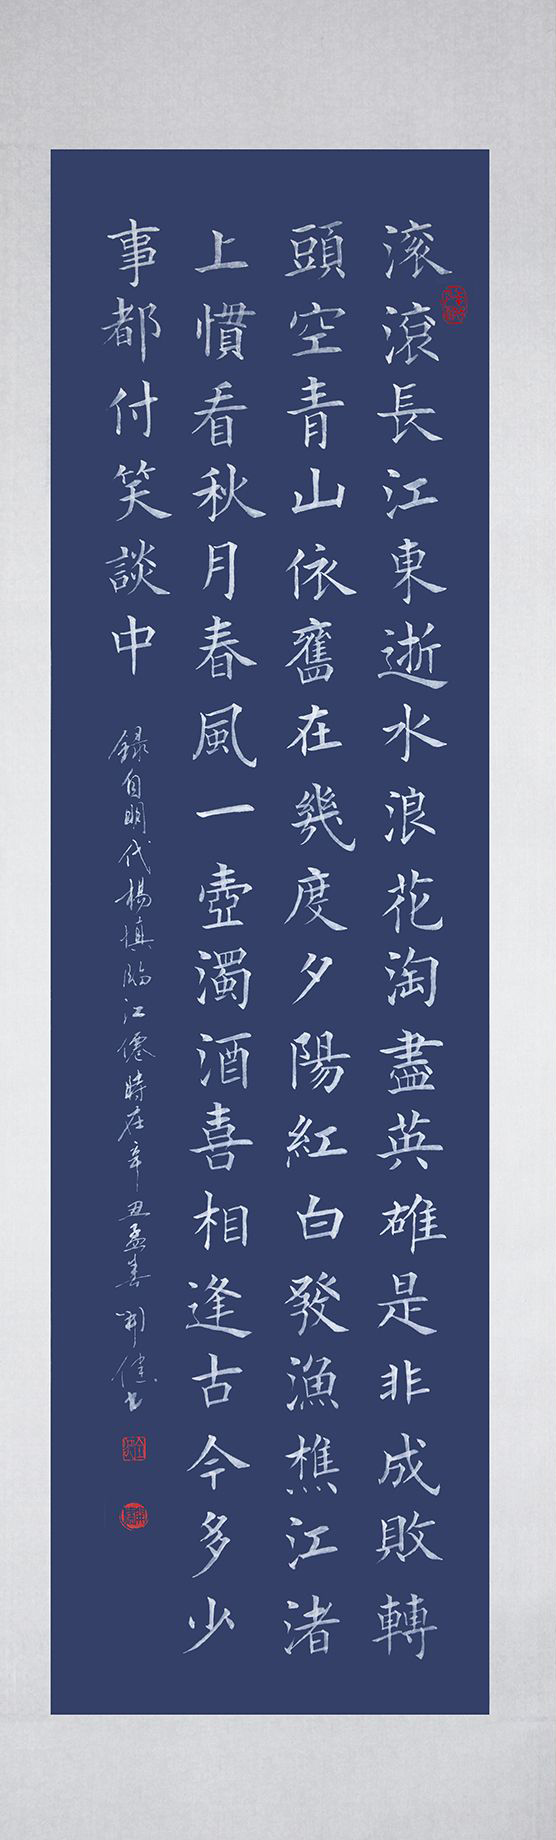 滚滾長江東逝水浪花淘盡英雄是非成敗轉
頭空青山依舊在幾度夕陽紅白發漁樵江渚
上慣看秋月春風一壺濁酒喜相逢古今多少
事都付笑談中
録自明代楊慎臨江僊時在辛丑孟春